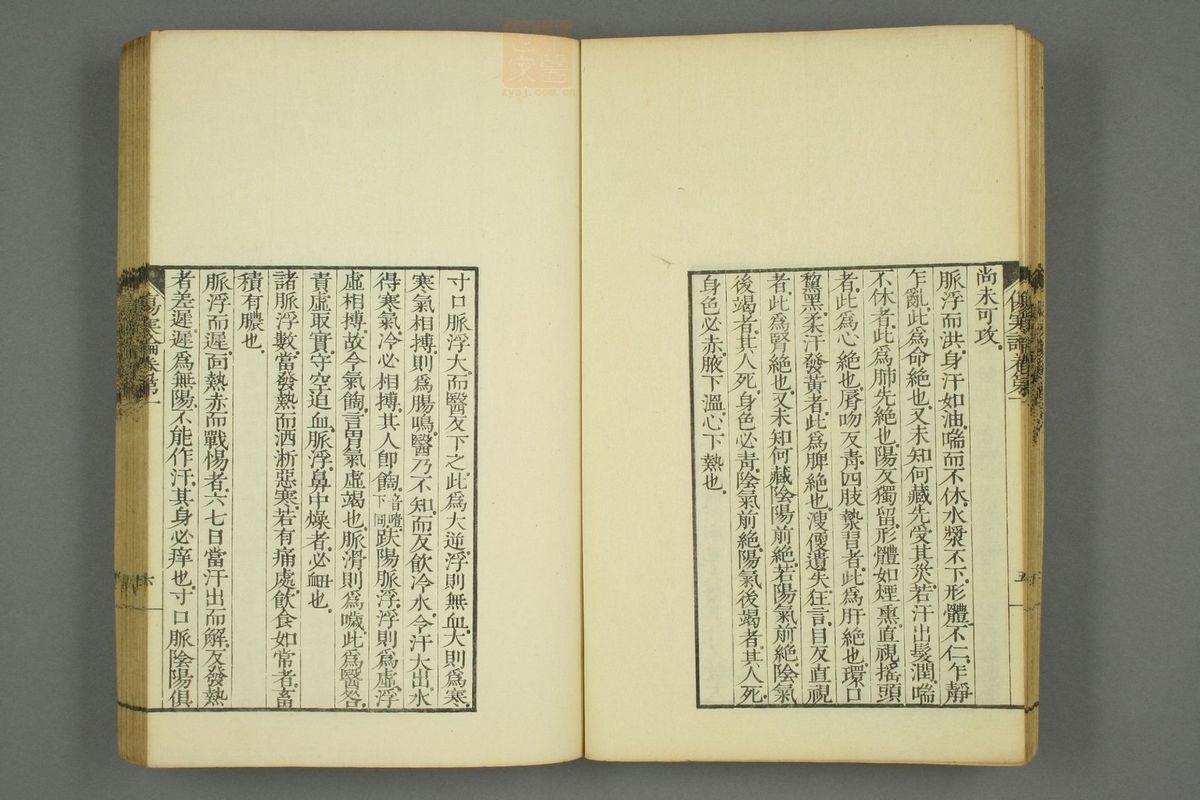 尚未可攻。
脈浮而洪。身汗如油。喘而不休。水漿不下。形體不仁。乍靜
乍亂。此爲命絶也。又未知何藏先受其災。若汗出髮潤。喘
不休者。此爲肺先絶也。陽反獨留。形體如煙熏。直視搖頭
者。此爲心絶也。脣吻反青。四肢漐習者。此爲肝絶也。環口
黧黑。柔汗發黃者。此爲脾絶也。溲便遺失。狂言。目反直視
者。此爲腎絶也。又未知何藏陰陽前絶。若陽氣前絶。陰氣
後竭者。其人死。身色必青。陰氣前絶。陽氣後竭者。其人死。
身色必赤。腋下溫。心下熱也。
傷寒論卷第一
五
寸口脈浮大。而醫反下之。此爲大逆。浮則無血。大則爲寒。
寒氣相搏。則爲腸鳴。醫乃不知。而反飮冷水。令汗大出。水
得寒氣。冷必相搏。其人卽䭇。音噎下同趺陽脈浮。浮則爲虛。浮
虛相搏。故令氣䭇。言胃氣虛竭也。脈滑則爲噦。此爲醫咎。
責虛取實。守空迫血。脈浮。鼻中燥者。必衄也。
諸脈浮數。當發熱而洒淅惡寒。若有痛處。飮食如常者。畜
積有膿也。
脈浮而遲。面熱赤而戰惕者。六七日當汗出而解。反發熱
者差遲。遲爲無陽。不能作汗。其身必痒也。寸口脈陰陽俱
傷寒論卷第一
六
zysj.com.cn